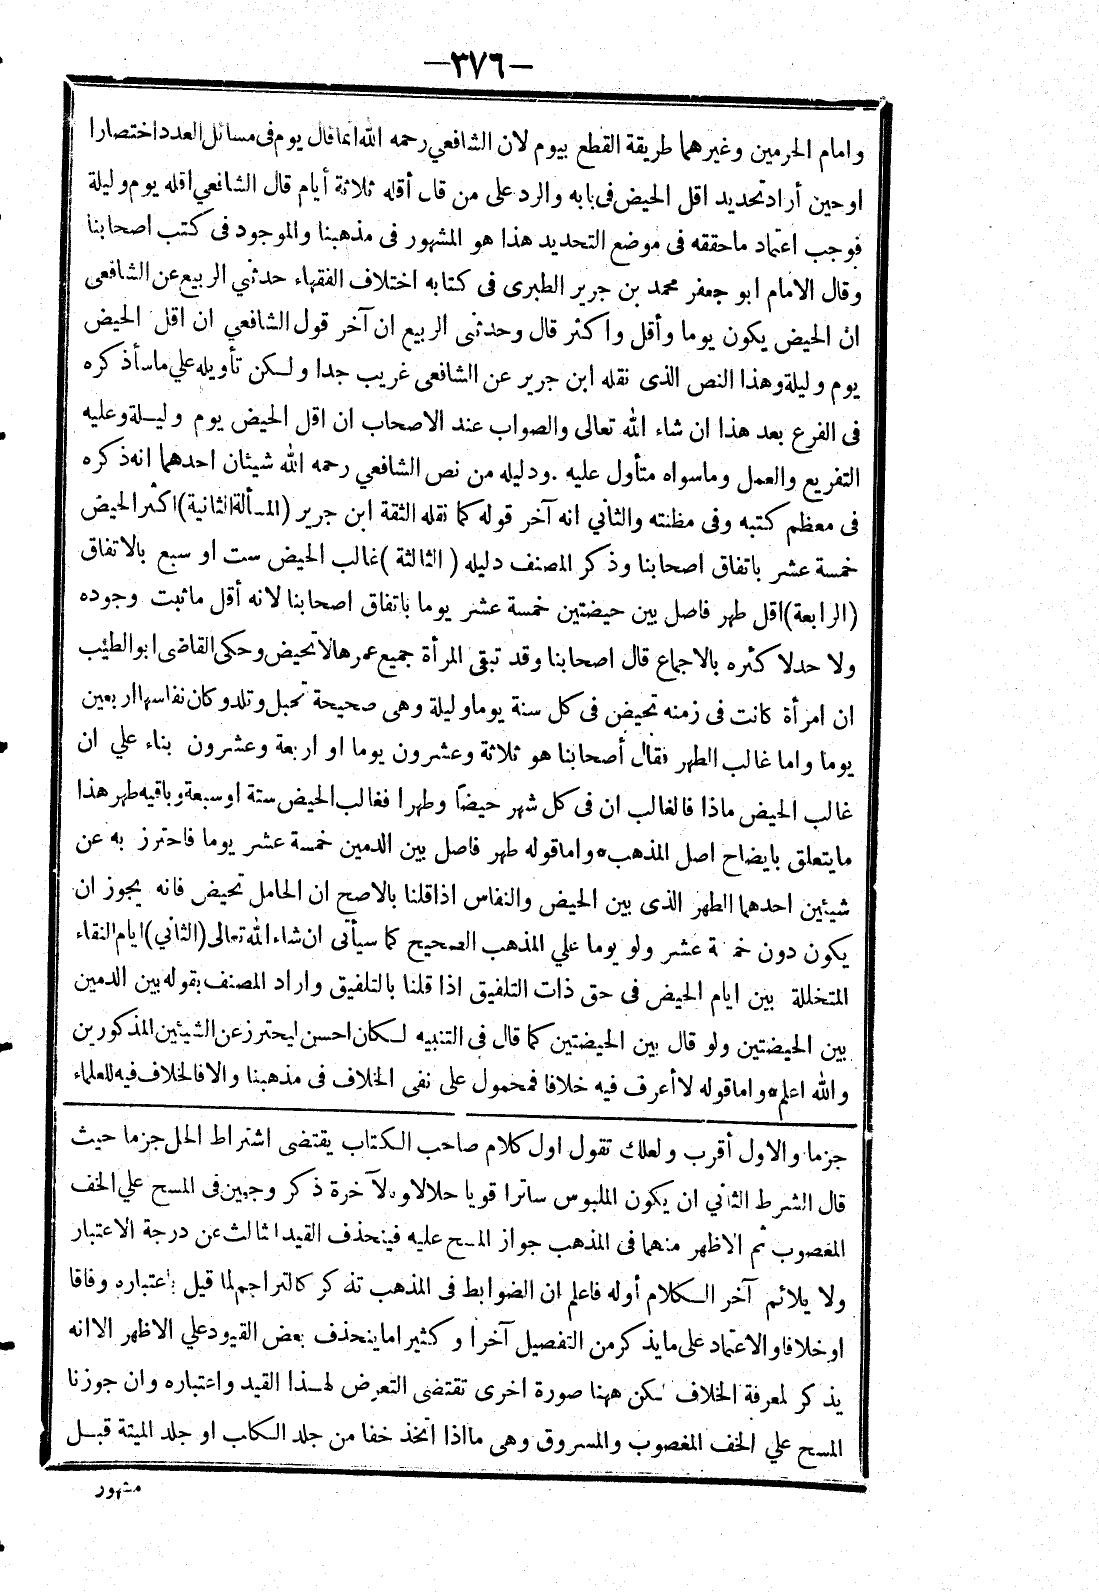 —٣٧٦—
وامام الحرمين وغيرهما طريقة القطع بيوم لان الشافعي رحمه الله انما قال يوم فى مسائل العدد اختصارا
اوحين أراد تحديد اقل الحيض فى بابه والرد على من قال أقله ثلاثة أيام قال الشافعي اقله يوم وليلة
فوجب اعتماد ماحققه فى موضع التحديد هذا هو المشهور فى مذهبنا والموجود فى كتب اصحابنا
وقال الامام ابو جعفر محمد بن جرير الطبرى فى كتابه اختلاف الفقهاء حدثني الربيع عن الشافعى
ان الحيض يكون يوما وأقل واكثر قال وحدثنى الربيع ان آخر قول الشافعي ان اقل الحيض
يوم وليلة وهذا النص الذى نقله ابن جرير عن الشافعى غريب جدا ولكن تأويله علي ماسأذكره
فى الفرع بعد هذا ان شاء الله تعالى والصواب عند الاصحاب ان اقل الحيض يوم وليلة وعليه
التفريع والعمل وماسواه متأول عليه . ودليله من نص الشافعي رحمه الله شيئان احدهما انه ذكره
فى معظم كتبه وفى مظنته والثاني انه آخر قوله كما نقله الثقة ابن جرير (المسألة الثانية) اكثر الحيض
خمسة عشر باتفاق اصحابنا وذكر المصنف دليله (الثالثة) غالب الحيض ست او سبع بالاتفاق
(الرابعة) اقل طهر فاصل بين حيضتين خمسة عشر يوما باتفاق اصحابنا لانه أقل ماثبت وجوده
ولا حد لاكثره بالاجماع قال اصحابنا وقد تبقى المرأة جميع عمرها لاتحيض وحكى القاضى ابو الطيب
ان امرأة كانت فى زمنه تحيض فى كل سنة يوما وليلة وهى صحيحة تحبل وتلد وكان نفاسها اربعين
يوما واما غالب الطهر فقال أصحابنا هو ثلاثة وعشرون يوما او اربعة وعشرون بناء علي ان
غالب الحيض ماذا فالغالب ان فى كل شهر حيضا وطهرا فغالب الحيض ستة اوسبعة وباقيه طهر هذا
مايتعلق بايضاح اصل المذهب * واما قوله طهر فاصل بين الدمين خمسة عشر يوما فاحترز به عن
شيئين احدهما الطهر الذى بين الحيض والنفاس اذا قلنا بالاصح ان الحامل تحيض فانه يجوز ان
يكون دون خمسة عشر ولو يوما علي المذهب الصحيح كما سيأتى ان شاء الله تعالى (الثاني) ايام النقاء
المتخللة بين ايام الحيض فى حق ذات التلفيق اذا قلنا بالتلفيق واراد المصنف بقوله بين الدمين
بين الحيضتين ولو قال بين الحيضتين كما قال فى التنبيه لكان احسن ليحترز عن الشيئين المذكورين
والله اعلم * واما قوله لا أعرف فيه خلافا فمحمول على نفى الخلاف فى مذهبنا والا فالخلاف فيه للعلماء
جزما والاول أقرب ولعلك تقول اول كلام صاحب الكتاب يقتضى اشتراط الحل جزما حيث
قال الشرط الثاني ان يكون الملبوس ساترا قويا حلالا ولآخرة ذكر وجهين فى المسح علي الخف
المغصوب ثم الاظهر منهما فى المذهب جواز المسح عليه فينحذف القيد الثالث عن درجة الاعتبار
ولا يلائم آخر الكلام أوله فاعلم ان الضوابط فى المذهب تذكر كالتراجم لما قيل باعتباره وفاقا
اوخلافا والاعتماد على مايذكر من التفصيل آخرا وكثيرا ماينحذف بعض القيود علي الاظهر الا انه
يذكر لمعرفة الخلاف لكن ههنا صورة اخرى تقتضى التعرض لهذا القيد واعتباره وان جوزنا
المسح علي الخف المغصوب والمسروق وهى مااذا اتخذ خفا من جلد الكلب او جلد الميتة قبل
مشهور